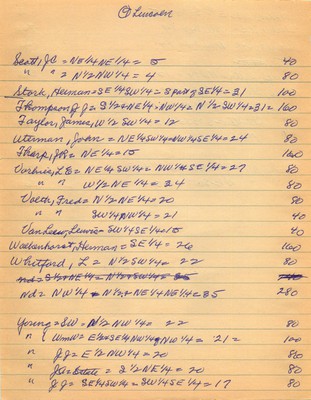 Lincoln
Scott, JC = NE 1/4 NE 1/4 = 15 40
" " = N 1/2 NW 1/4 = 4 80
Stork, Herman = SE 1/4 SW 1/4 = S part of SE 1/4 = 31 100
Thompson J J = S 1/2 NE 1/4 = NW 1/4 = N 1/2 SW 1/4 = 31 = 160
Taylor, James, W 1/2 SW 1/4 = 12 80
John = NE 1/4 SW 1/4 = NW 1/4 SE 1/4 = 24 80
Tharp, JR = NE 1/4 = 15 160
Vorhies, L E = NE 1/4 SW 1/4 = NW 1/4 SE 1/4 = 27 80
" " W 1/2 NE 1/4 = 34 80
Voeth, Fred = N 1/2 NE 1/4 = 20 80
" " SW 1/4 NW 1/4 = 21 40
Van Leew, Lewis = SW 1/4 SE 1/4 = 15 40
Herman = SE 1/4 = 26 160
Whitford, L = N 1/2 SW 1/4 = 22 80
nd = S 1/2 NE 1/4 = N 1/2 SW 1/4 = 35
nd = NW 1/4 = N 1/2 NE 1/4 = 35 280
Young = SW = N 1/2 NW 1/4 = 22 80
" Wm W = E 1/2 NW 1/4 = 21 = 100
" J J = E 1/2 NW 1/4 = 20 80
" Jas Estate = S 1/2 NE 1/4 = 20 80
" J J = SE 1/4 SW 1/4 = SW 1/4 SE 1/4 = 17 80